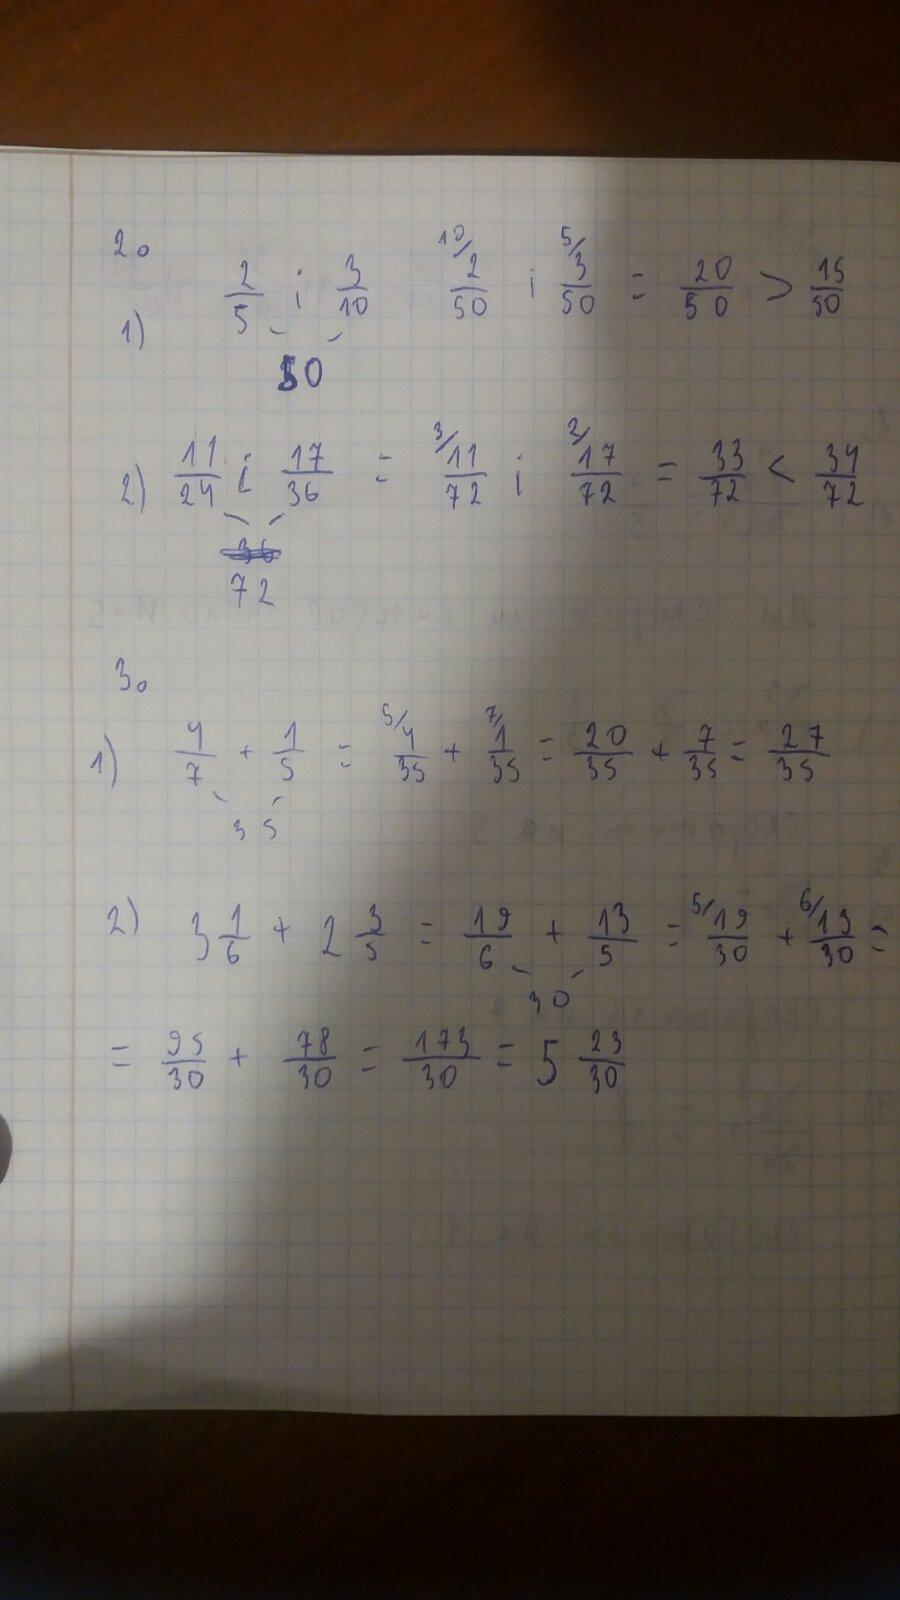 2.
1) 2/5 і 3/10 10/ 2/50 і 5/ 3/50 = 20/50 > 15/50
50
2) 11/24 і 17/36 = 3/ 11/72 і 2/ 17/72 = 33/72 < 34/72
36
72
3.
1) 4/7 + 1/5 = 5/ 4/35 + 7/ 1/35 = 20/35 + 7/35 = 27/35
35
2) 3 1/6 + 2 3/5 = 19/6 + 13/5 = 5/ 19/30 + 6/ 13/30 =
30
= 95/30 + 78/30 = 173/30 = 5 23/30